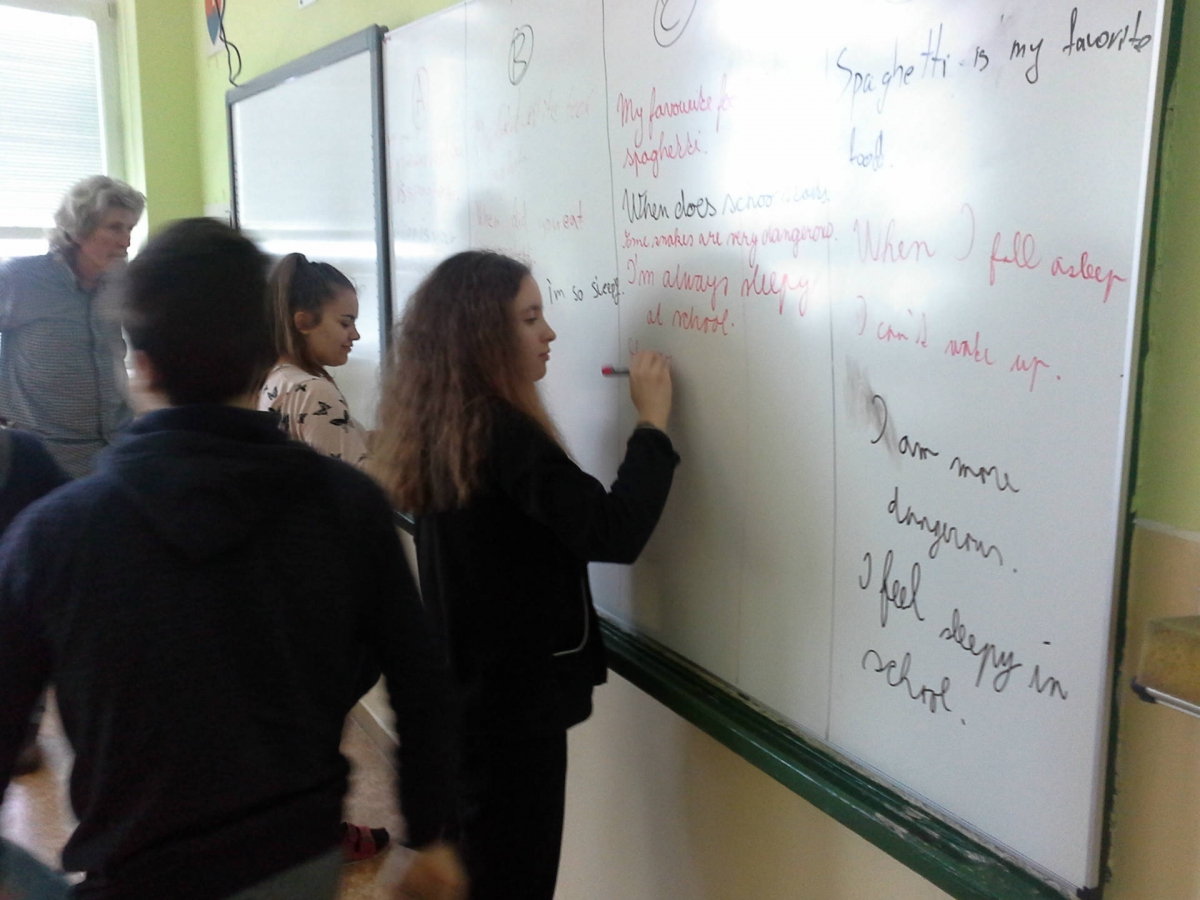 A
B
When did you eat
i'm so sleepy.
C
My favourite fo
spaghetti.
When does school starts
Some snakes are very dangerous.
I'm always sleepy
at school.
Spaghetti is my favorite
food.
When I fall asleep
I can't wake up.
I am more
dangerous.
I feel
sleepy in
school.